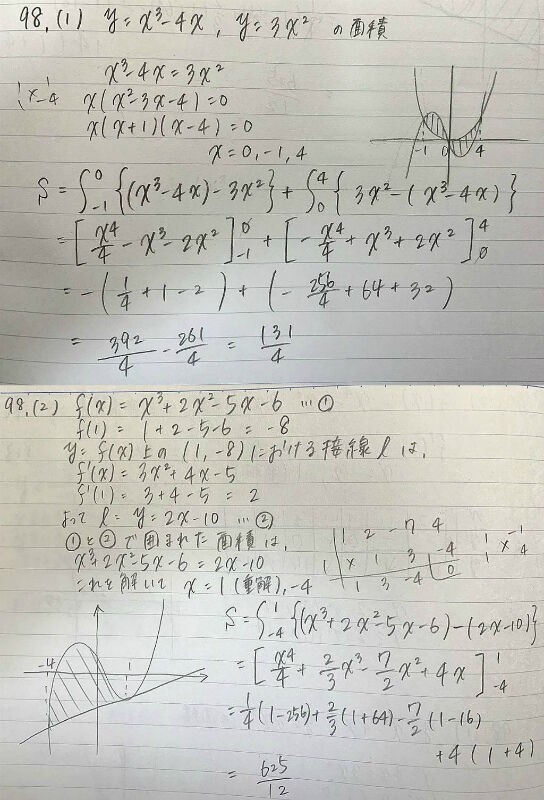 98.(1) y=x³-4x, y=3x² の面積
x³-4x=3x²
x(x²-3x-4)=0
x(x+1)(x-4)=0
x=0,-1,4
-1 0 4
S=∫₋₁⁰{(x³-4x)-3x²}+∫₀⁴{3x²-(x³-4x)}
=[x⁴/4-x³-2x²]₋₁⁰+[-x⁴/4+x³+2x²]₀⁴
=-(1/4+1-2)+(-256/4+64+32)
=392/4-261/4=131/4
98.(2) f(x)=x³+2x²-5x-6 …①
f(1)=1+2-5-6=-8
y=f(x)上の(1,-8)における接線lは、
f'(x)=3x²+4x-5
f'(1)=3+4-5=2
よって l=y=2x-10 …②
①と②で囲まれた面積は、
x³+2x²-5x-6=2x-10
これを解いて x=1(重解),-4
1 2 -7 4
1 x 1 3 -4
1 3 -4 0
-4 1
S=∫₋₄¹{(x³+2x²-5x-6)-(2x-10)}
=[x⁴/4+2/3x³-7/2x²+4x]₋₄¹
=1/4(1-256)+2/3(1+64)-7/2(1-16)
+4(1+4)
=625/12